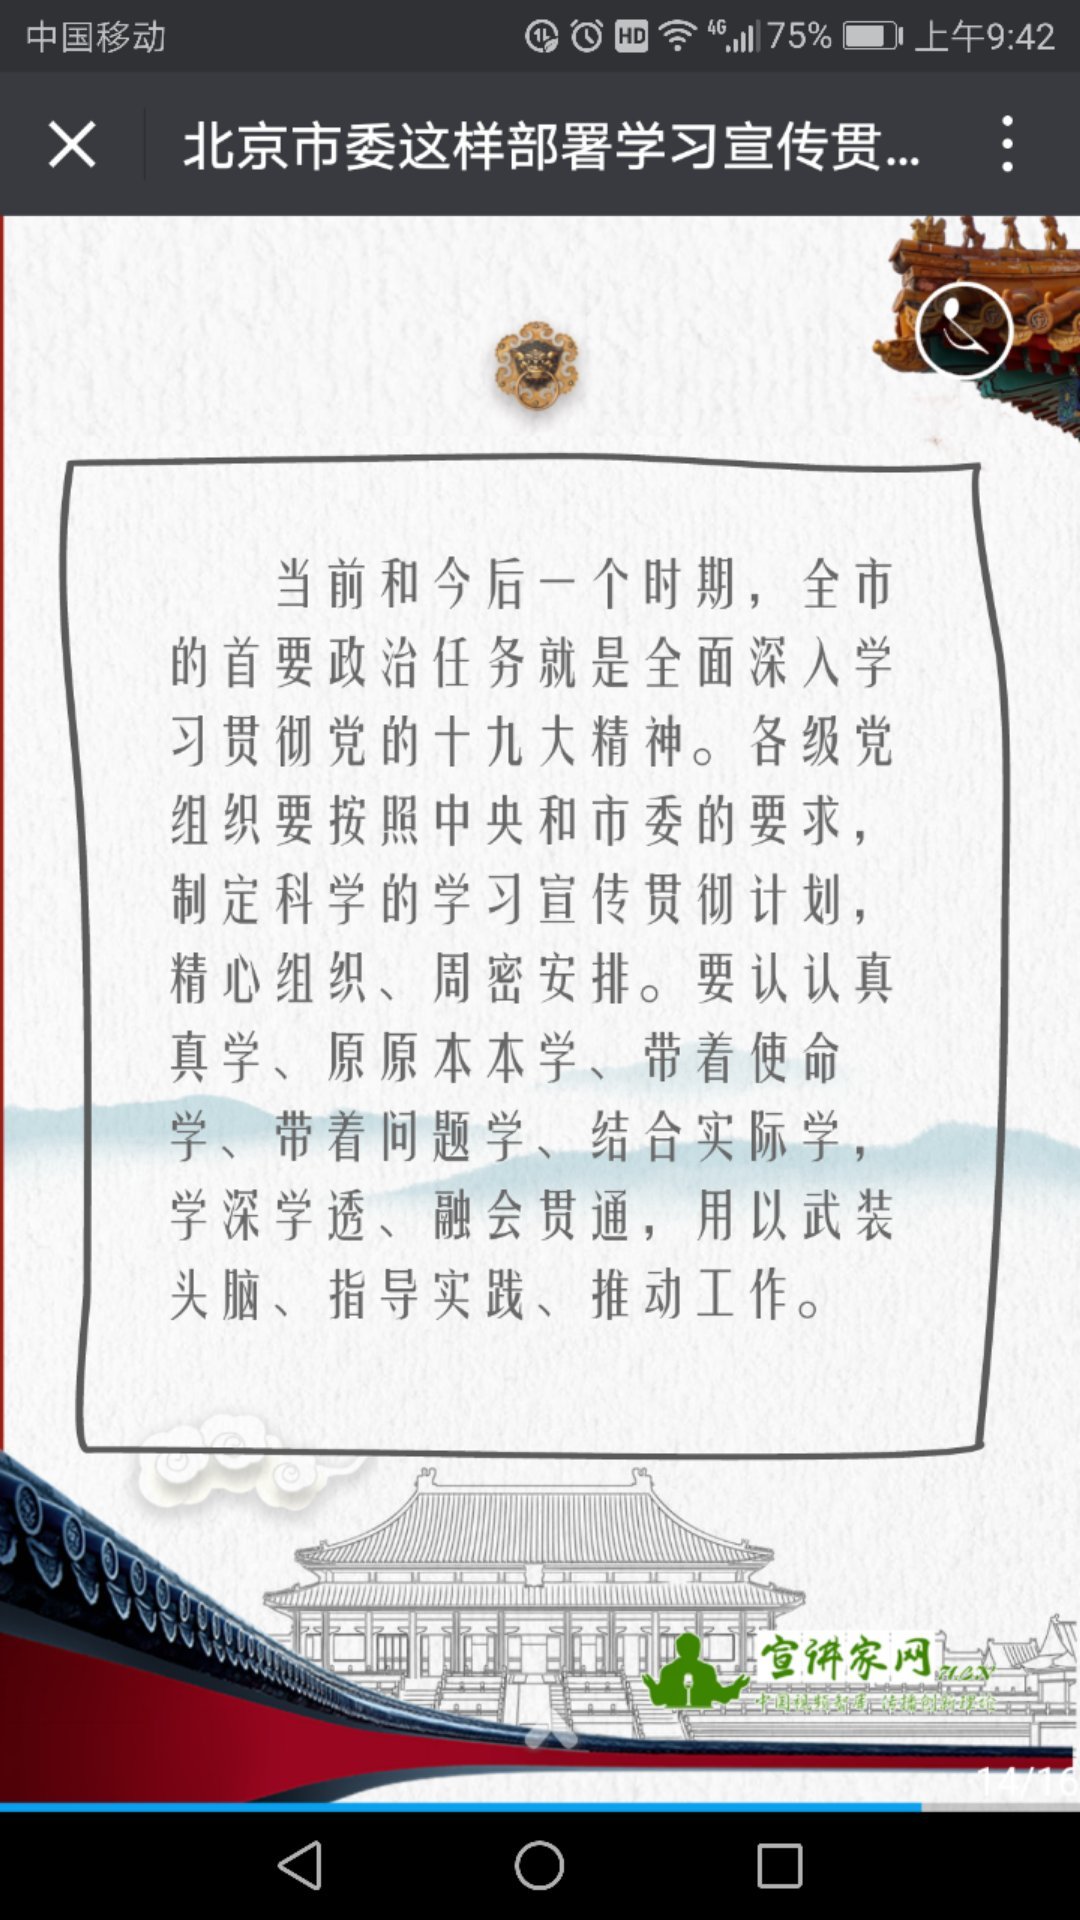 中国移动
HD
4G
75%
上午9:42
北京市委这样部署学习宣传贯...
当前和今后一个时期，全市
的首要政治任务就是全面深入学
习贯彻党的十九大精神。各级党
组织要按照中央和市委的要求，
制定科学的学习宣传贯彻计划，
精心组织、周密安排。要认认真
真学、原原本本学、带着使命
学、带着问题学、结合实际学，
学深学透、融会贯通，用以武装
头脑、指导实践、推动工作。
宣讲家网
14/16